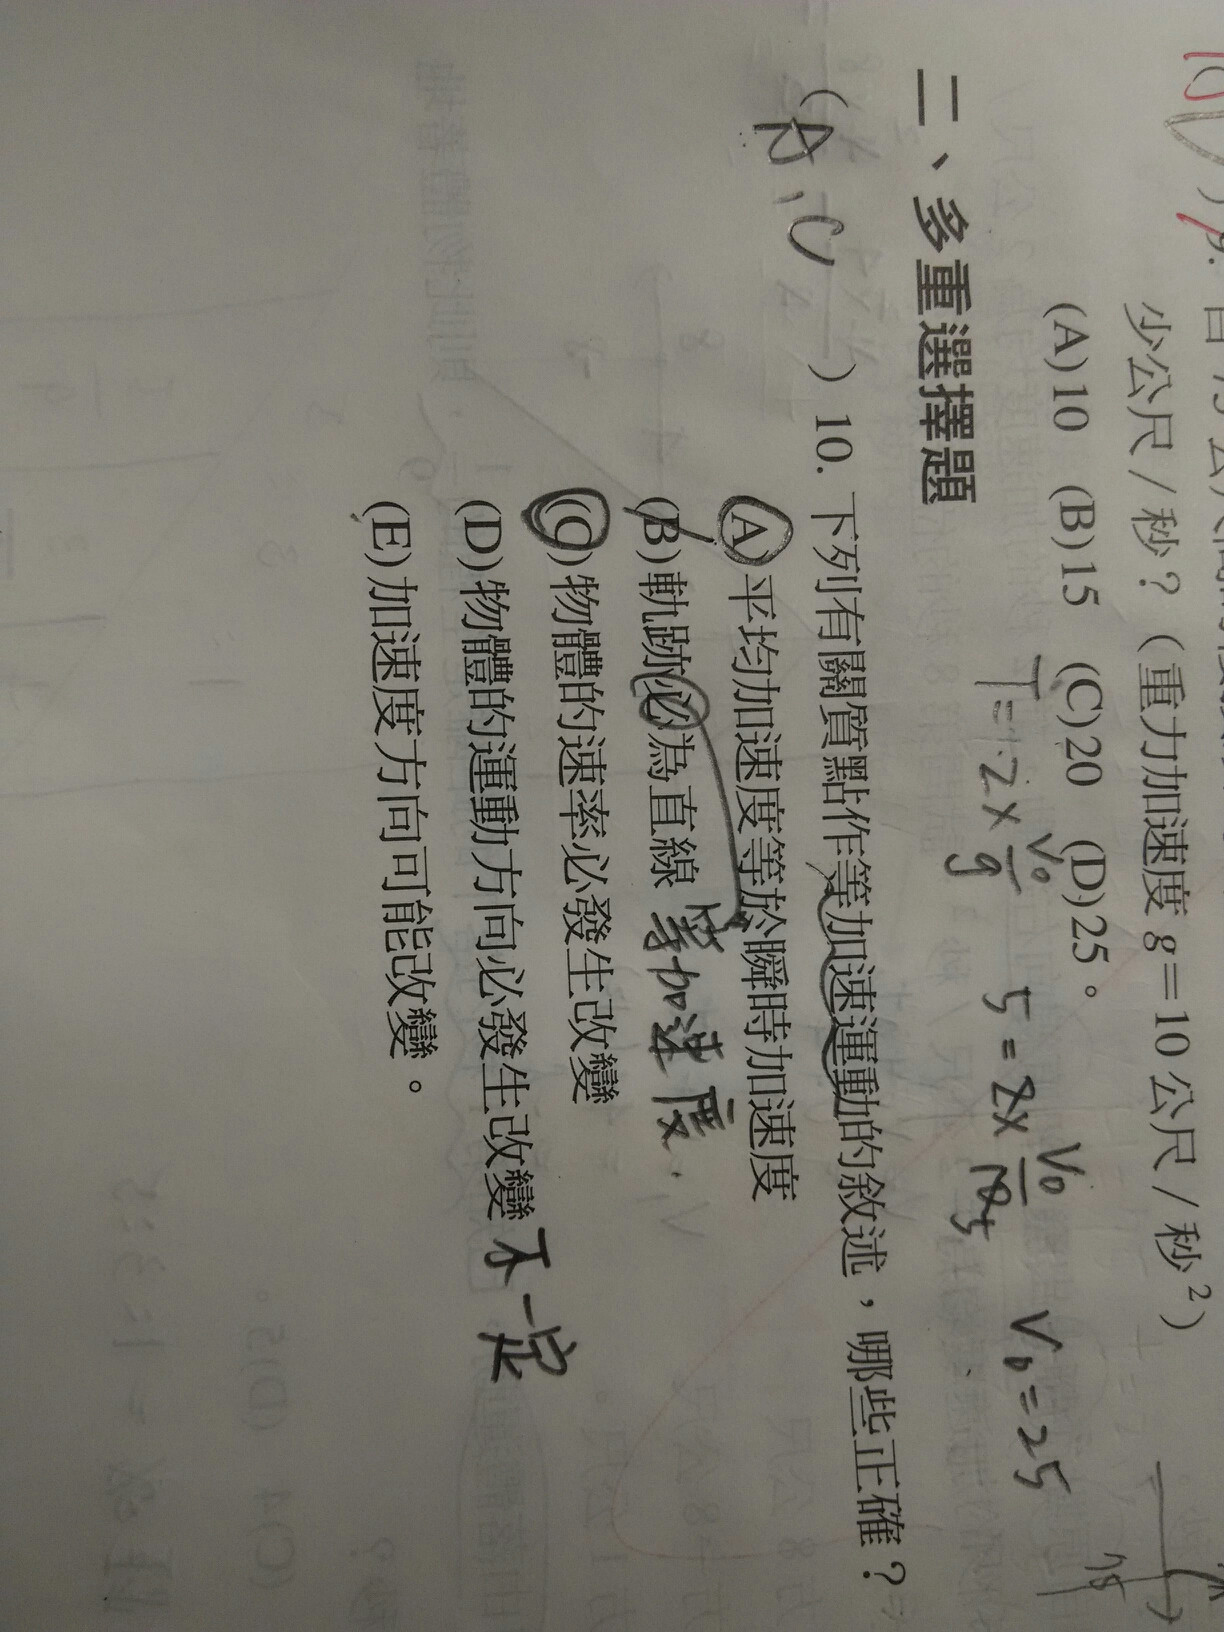 少公尺/秒？（重力加速度 g＝10 公尺/秒²）
(A)10 (B)15 (C)20 (D)25。
T=2×V₀/g 5=2×V₀/10 V₀=25
二、多重選擇題
（A,C）10. 下列有關質點作等加速運動的敘述，哪些正確？
(A)平均加速度等於瞬時加速度
(B)軌跡必為直線 等加速度.
(C)物體的速率必發生改變
(D)物體的運動方向必發生改變 不一定
(E)加速度方向可能改變。